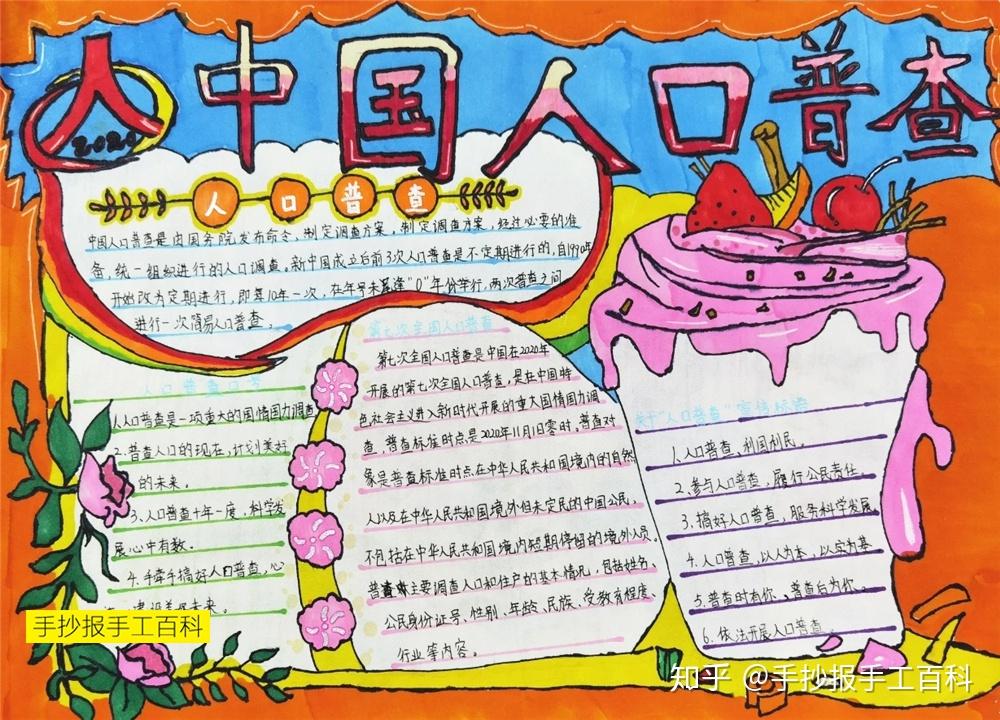 中国人口普查
人
2020
人口普查
中国人口普查是由国务院发布命令，制定调查方案，制定调查方案，经过必要的准
备，统一组织进行的人口调查。新中国成立后前3次人口普查是不定期进行的，自1990年
开始改为定期进行，即每10年一次，在年号末尾逢"0"年份举行，两次普查之间
进行一次简易人口普查。
人口普查口号
1.人口普查是一项重大的国情国力调查
2.普查人口的现在，计划美好
的未来。
3.人口普查十年一度，科学发
展心中有数。
4.手牵手搞好人口普查，心
建设美好未来。
第七次全国人口普查
第七次全国人口普查是中国在2020年
开展的第七次全国人口普查，是在中国特
色社会主义进入新时代开展的重大国情国力调
查，普查标准时点是2020年11月1日零时。普查对
象是普查标准时点在中华人民共和国境内的自然
人以及在中华人民共和国境外但未定居的中国公民，
不包括在中华人民共和国境内短期停留的境外人员。
普查主要调查人口和住户的基本情况，包括姓名、
公民身份证号、性别、年龄、民族、受教育程度、
行业等内容。
关于"人口普查"宣传标语
1.人口普查，利国利民。
2.参与人口普查，履行公民责任
3.搞好人口普查，服务科学发展。
4.人口普查，以人为本，以实为基
5.普查时有你、普查后为你。
6.依法开展人口普查
手抄报手工百科
知乎 @手抄报手工百科